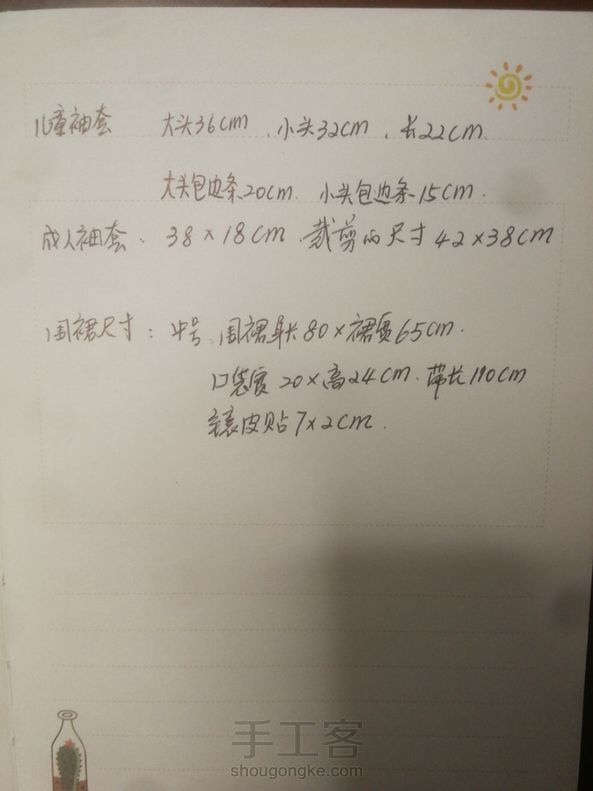 儿童袖套 大头36cm、小头32cm、长22cm
大头包边条20cm. 小头包边条15cm.
成人袖套. 38×18cm、裁剪的尺寸42×38cm
围裙尺寸: 中号、围裙身长80×裙宽65cm.
口袋宽20×高24cm. 带长110cm
皮贴7×2cm.
手工客
shougongke.com